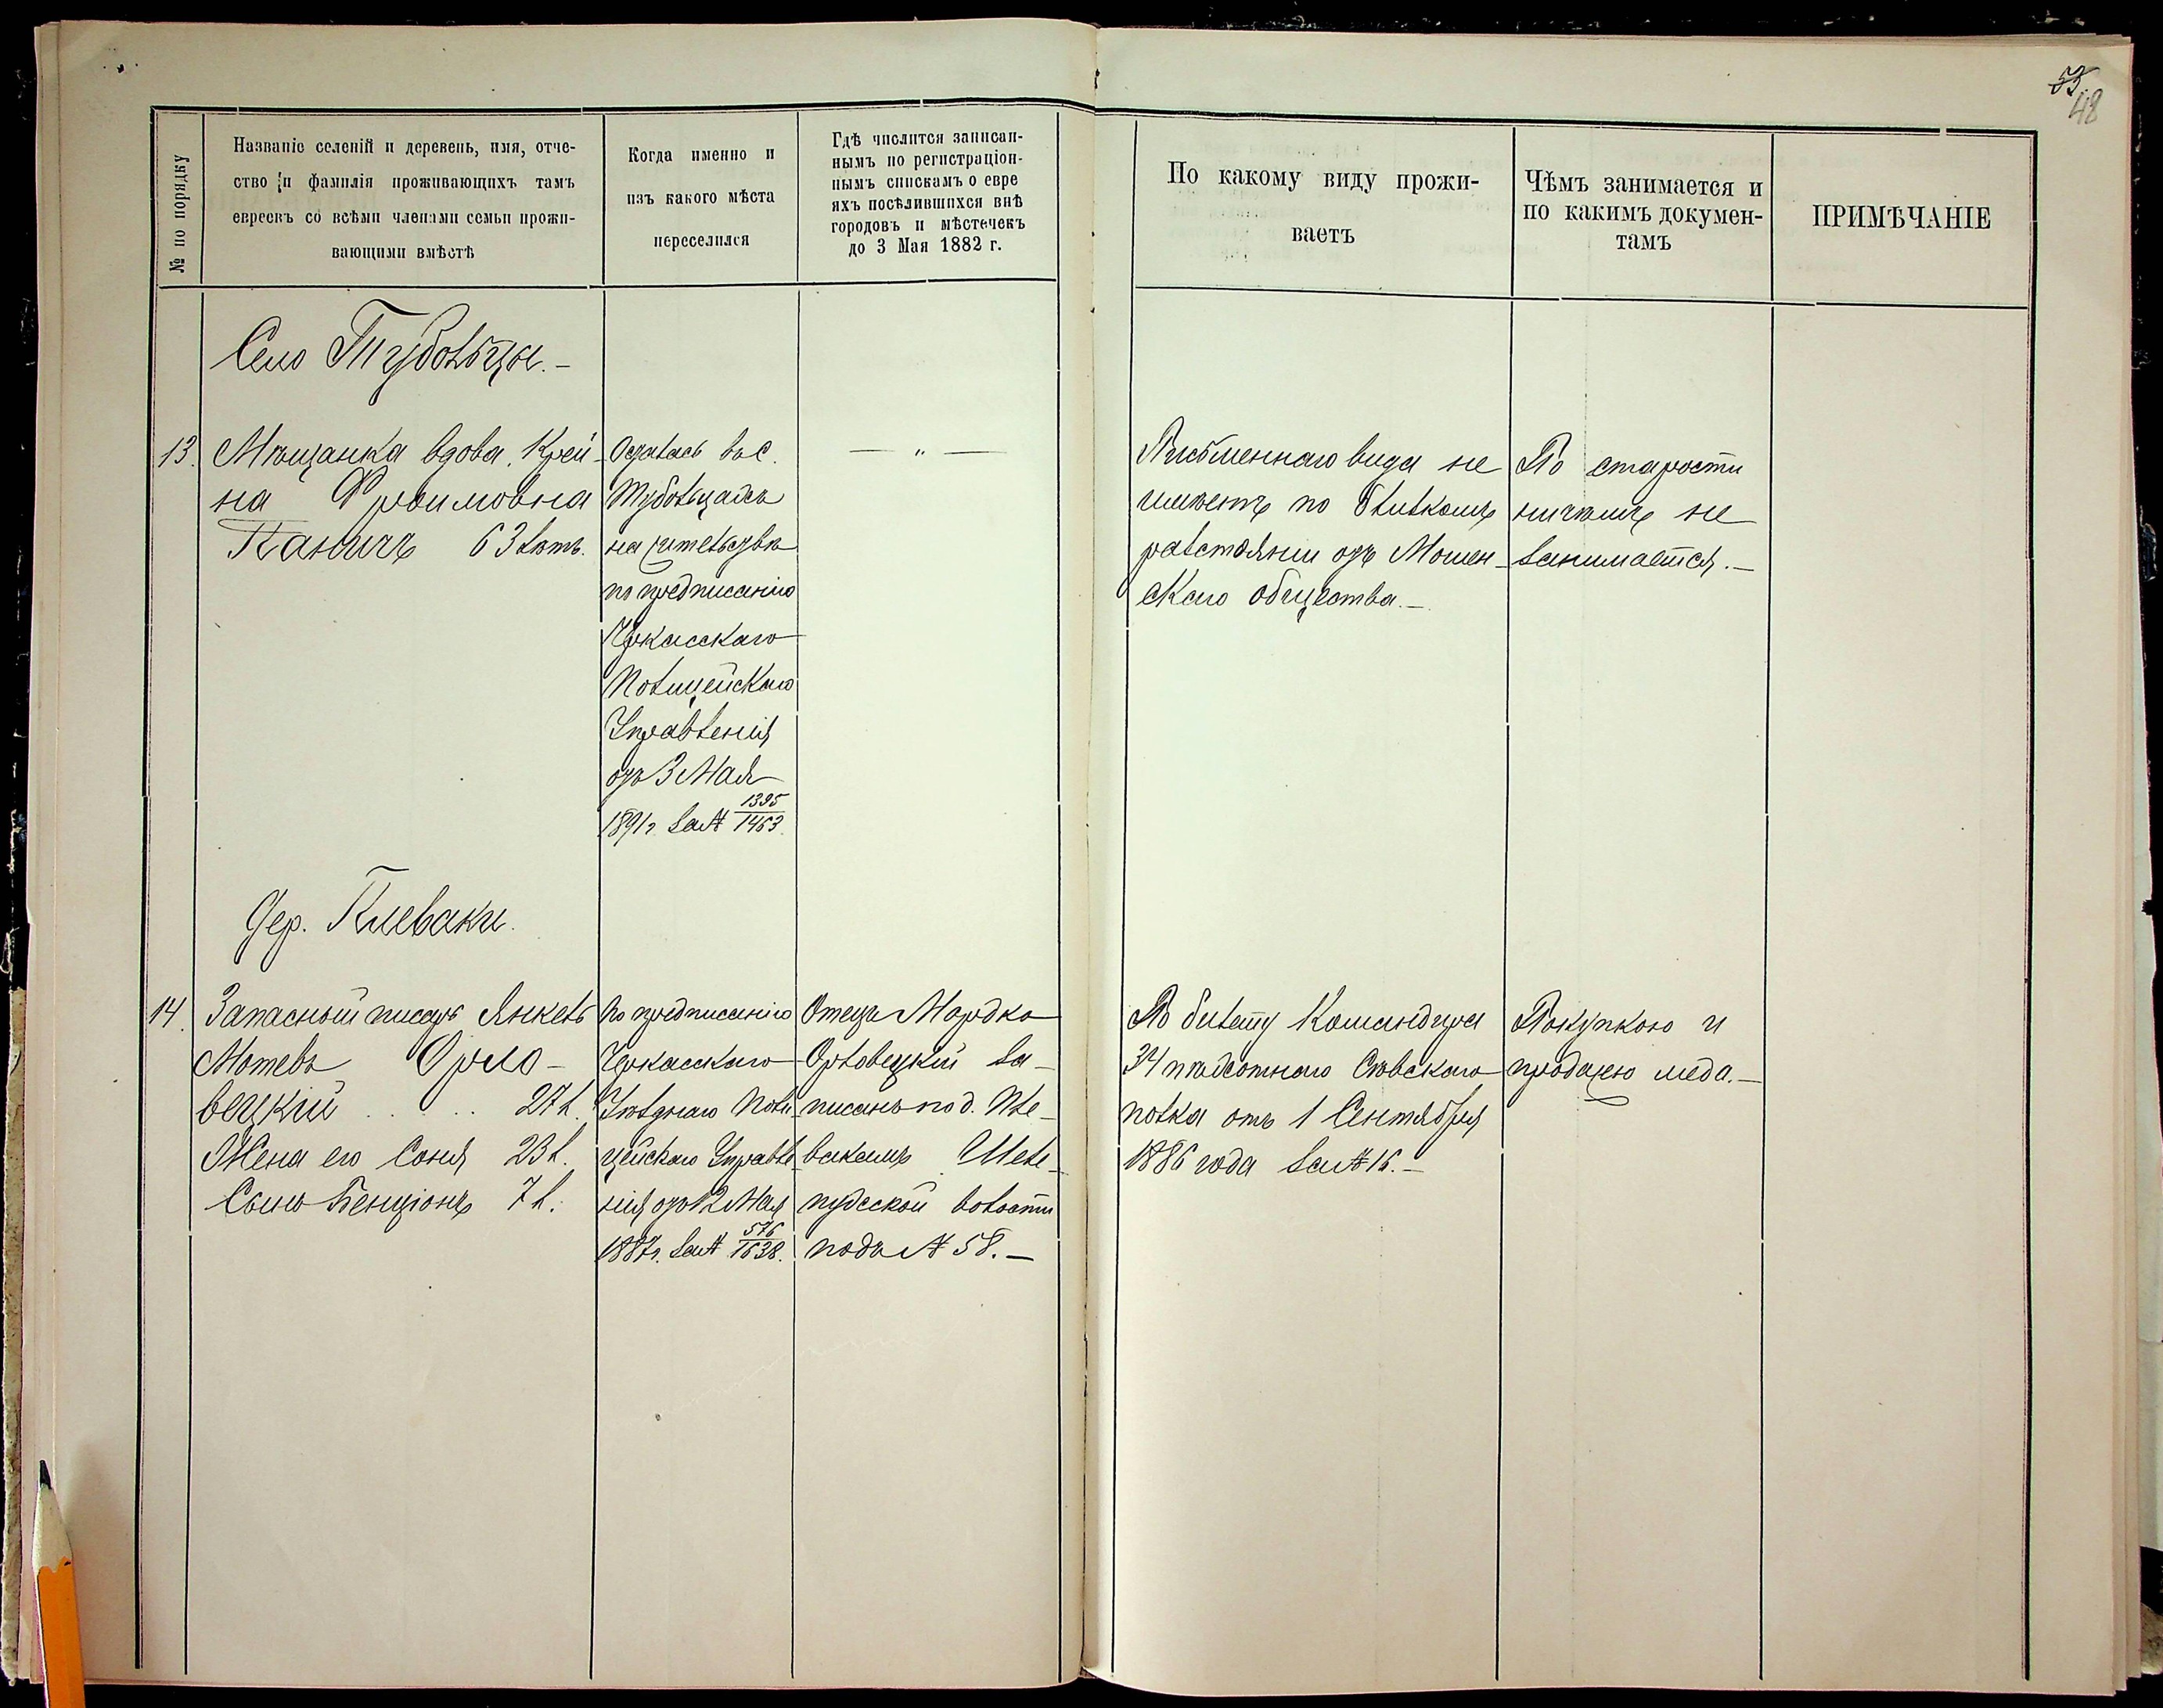 53.
48
№ по порядку
Названіе селеній и деревень, имя, отче-
ство и фамилія проживающихъ тамъ
евреевъ со всѣми членами семьи прожи-
вающими вмѣстѣ
Когда именно и
изъ какого мѣста
переселился
Гдѣ числится записан-
нымъ по регистраціон-
нымъ спискамъ о евре
яхъ посѣлившихся внѣ
городовъ и мѣстечекъ
до 3 Мая 1882 г.
По какому виду прожи-
ваетъ
Чѣмъ занимается и
по какимъ докумен-
тамъ
ПРИМѢЧАНІЕ
Село Тубольцы.-
13.
Мѣщанка вдова Крей-
на Фроимовна
Паничъ 63 лѣтъ.
Осталась въ с.
Тубольцахъ
на жительствѣ
по предписанію
Черкасскаго
Полицейскаго
Управленія
отъ 3 Мая
1891 г. за № 1395/1463.
— „ —
Письменнаго вида не
имѣетъ по близкому
разстоянии отъ Мошен-
скаго общества.-
По старости
ничѣмъ не
занимается.-
Дер. Плеваки.
14.
Запасный писарь Янкель
Мотевъ Орло-
вецкій . . . . 27 л.
Жена его Соня 23 л.
Сынъ Бенціонъ 7 л.
По предписанію
Черкасскаго
Уѣзднаго Поли
цейскаго Управле
нія отъ 12 Мая
1887 г. за № 576/1638.
Отецъ Мордко
Орловецкій за-
писанъ по д. Пле-
вакамъ Шеле-
пудской волости
подъ № 58.-
По билету Командира
34 пѣхотнаго Сѣвскаго
полка отъ 1 Сентября
1886 года за № 16.-
Покупкою и
продажею меда.-